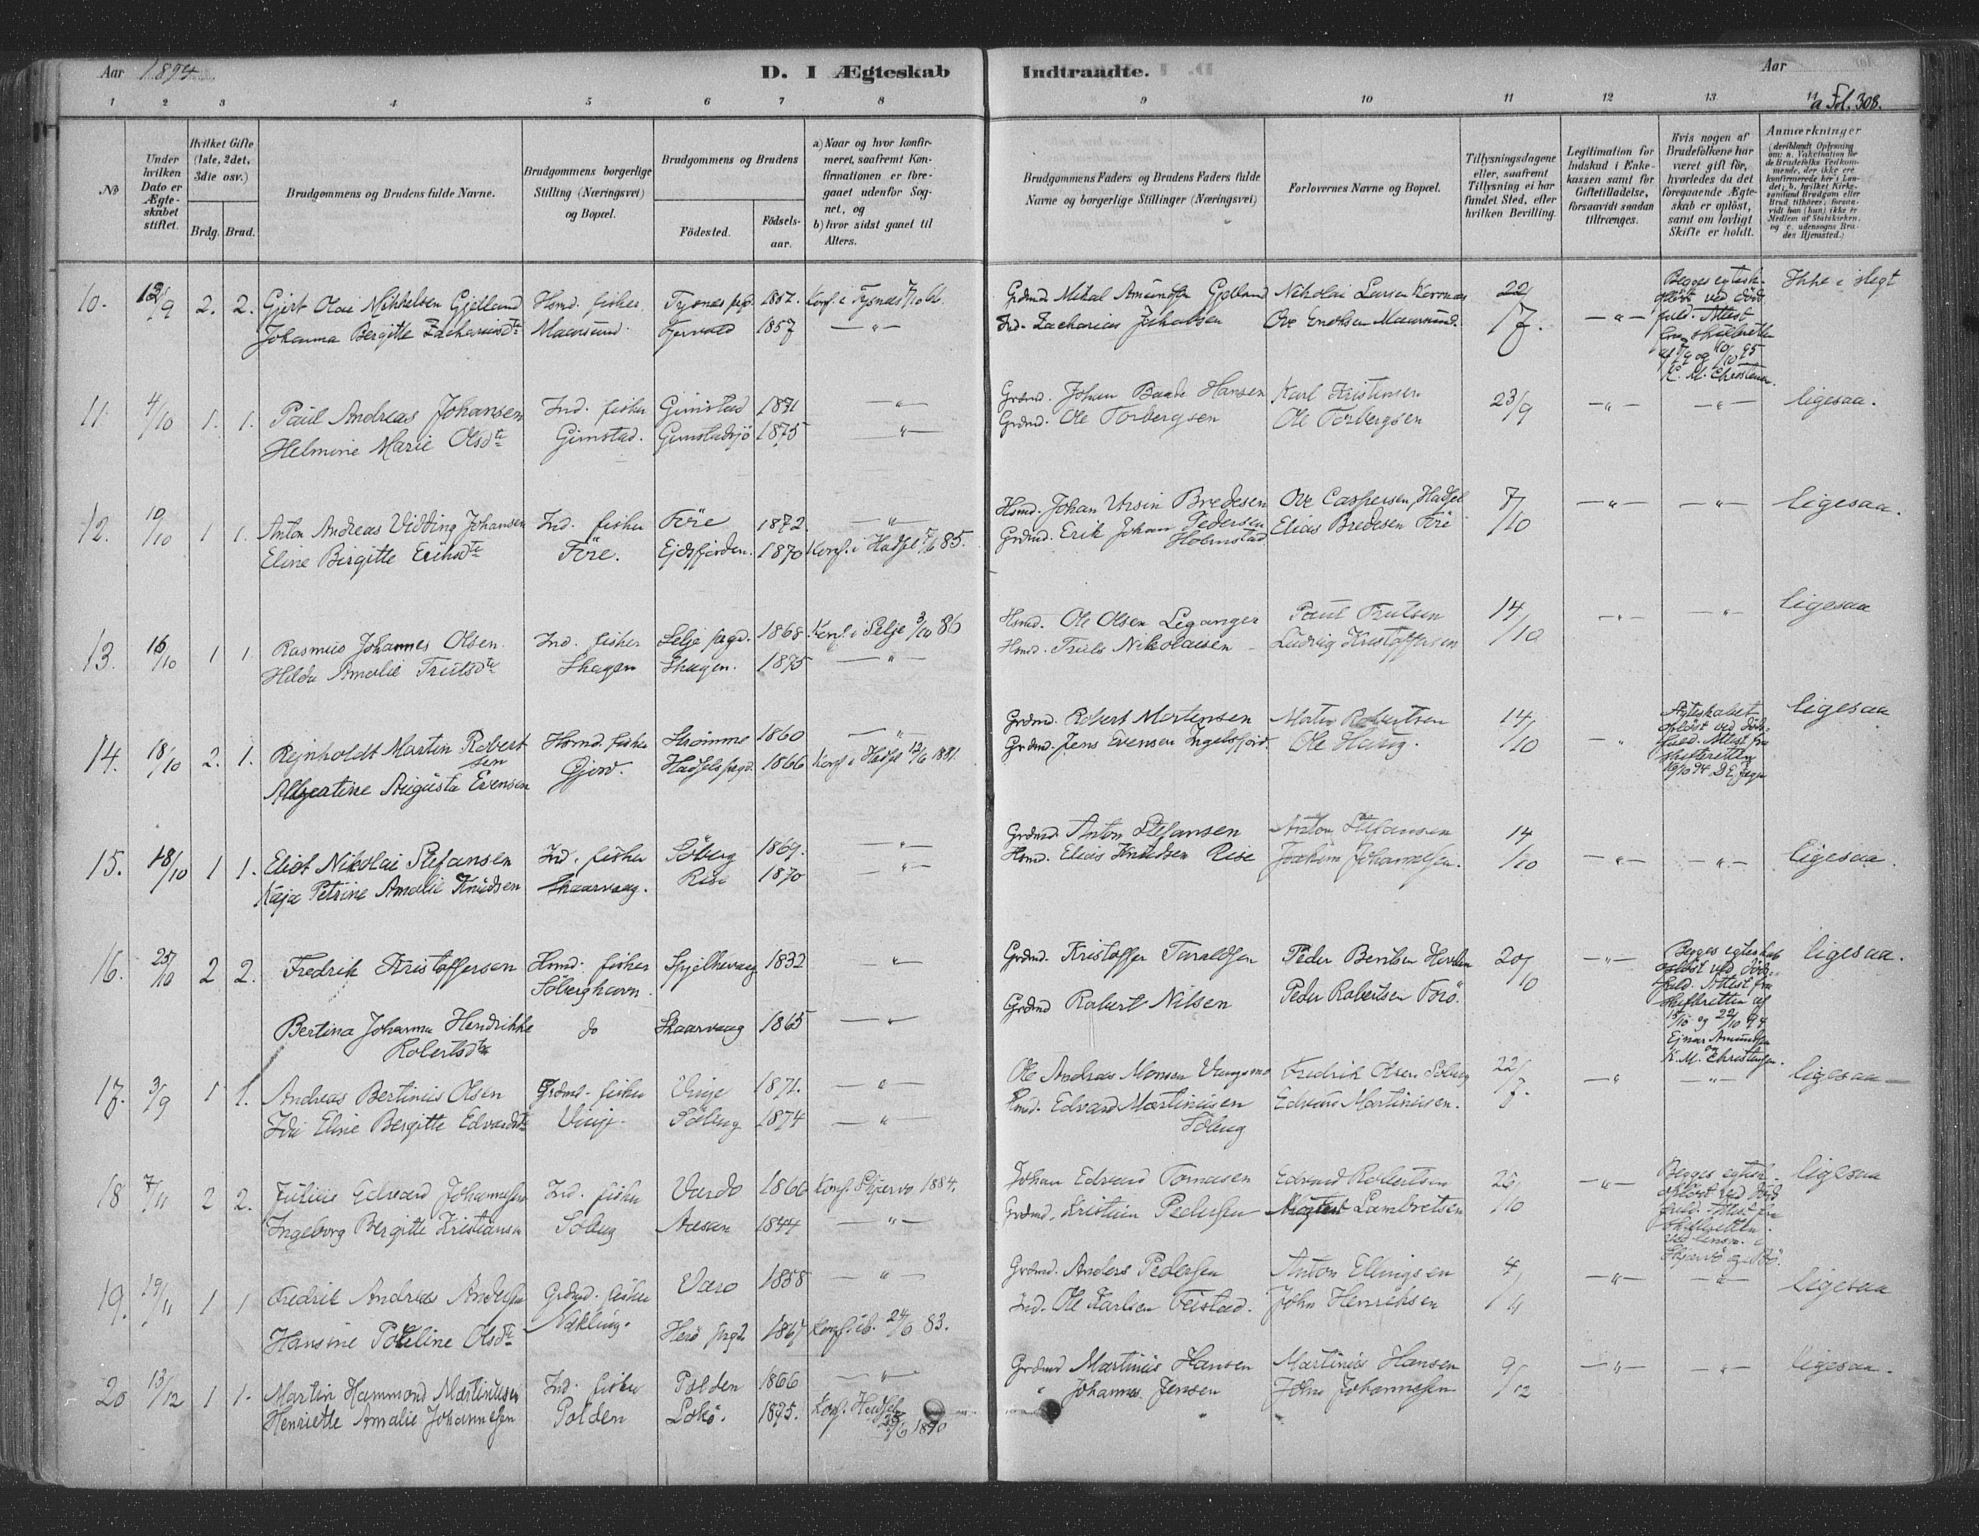 Aar 1894
D. I Ægteskab
Indtraadte.
Aar
1 2 3 4 5 6 7 8
9 10 11 12 13 14
a Fol. 308.
No
Under hvilken Dato er Ægteskabet stiftet.
Hvilket Gifte (1ste, 2det, 3die osv.)
Brdg. Brud.
Brudgommens og Brudens fulde Navne.
Brudgommens borgerlige Stilling (Næringsvei) og Bopæl.
Brudgommens og Brudens
Födested.
Födsels-aar.
a) Naar og hvor konfirmeret, saafremt Konfirmationen er foregaaet udenfor Sognet, og
b) hvor sidst ganet til Alters.
Brudgommens Faders og Brudens Faders fulde Navne og borgerlige Stillinger (Næringsvei)
Forlovernes Navne og Bopæl.
Tillysningsdagene eller, saafremt Tillysning ei har fundet Sted, efter hvilken Bevilling.
Legitimation for Indskud i Enkekassen samt for Giftetilladelse, forsaavidt saadan tiltrænges.
Hvis nogen af Brudefolkene har været gift för, hvorledes da det foregaaende Ægteskab er oplöst, samt om lovligt Skifte er holdt.
Anmærkninger
10. 12/9 2. 2. Gjert Olai Mikkelsen Gjelland Hsmd. fisker Tysnes pgd. 1852. Konf. i Tysnes Grdmd. Mikal Amundsen Gjelland Nikolai Larsen 22/7. Begges egtesk. oplöst ved Döds- Ikke i slegt
Johanna Bergitte Zachariasdtr Maarsund. 1857 — " — Ind. Zacharias Jakobsen Ove Enoksen Maarsund. — " — fald. Attest fra skifteretten
K. M. Christensen
11. 4/10 1. 1. Paul Andreas Johansen Ind. fisker Gimstad 1871 — " — Grdmd. Johan Baak Hansen Karl Kristensen 23/9 — " — — " — ligesaa.
Helmine Marie Olsdtr Gimstad. Gimstadsjö 1875 — " — Grdmd. Ole Torbergsen Ole Torbergsen
12. 10/10 1 1. Anton Andreas Vidding Johansen Ind. fisker Före 1872. — " — Hsmd. Johan Ursin Bredesen Ove Caspersen Hadsel 7/10 — " — — " — ligesaa.
Eline Bergitte Eriksdtr Före. Eidsfjorden. 1870 Konf. i Hadsel 85. Grdmd. Erik Johan Pedersen Holmstad Elias Bredesen Före
13. 16/10 1 1. Rasmus Johannes Olsen. Ind. fisker Selje pgd. 1868 Konf. i Selje 3/10 86 Hsmd. Ole Olsen Leganger Paul Trulsen 14/10 — " — " ligesaa
Hilda Amalie Trulsdtr Skagen Skagen. 1875 — " — Hsmd. Truls Nikolaisen Ludvig Kristoffersen
14. 18/10 2. 1. Rejnholdt Martin Robertsen Hsmd. fisker Strömme 1860 — " — Grdmd. Robert Mortensen Martin Robertsen 14/10 " Ægteskabet oplöst ved Döds- ligesaa
Augusta Evensen Gjerv. Hadsels pgd. 1866 Konf. i Hadsel 12/6 1881. Grdmd. Jens Evensen Ingelsfjord Ole Haug. fald. Attest fra skifteretten 19/10 94
15. 18/10 1 1. Eliot Nikolai Stefansen Ind. fisker Söberg 1869. — " — Grdmd. Anton Stefansen Anton Stefansen 14/10 — " — — " — ligesaa.
Kaja Petrine Amalie Knudsen Skaarvaag. Rise 1870 — " — Hsmd. Elias Knudsen Rise Joakim Johannesen.
16. 25/10 2 2. Fredrik Kristoffersen Hsmd. fisker Spjelkevaag 1832 — " — Grdmd. Kristoffer Taraldsen Peder Bentsen 20/10 — " — Begges egteskab oplöst ved Döds- ligesaa.
Söberghavn. fald. Attest fra skifteretten af
Bertina Johanna Hendrikke Robertsdtr do Skaarvaag 1865 — " — Grdmd Robert Nilsen Peder Robertsen 15/10 og 22/10 94
Ejnar Amundsen og K. M. Christensen.
17. 3/9 1 1. Andreas Bertinius Olsen Grdmd. fisker Vinje 1871. — " — Ole Andreas Monsen Fredrik Olsen Söberg 22/7. " " ligesaa —
Ida Eline Bergitte Edvardsdtr Vinje. Söberg 1874 — " — Hsmd. Edvard Martinusen Söberg Edvard Martinusen.
18 7/11 2 2. Julius Edvard Johannesen Ind. fisker Vardö 1866 Konf. Skjervö 1884. Johan Edvard Tomasen Edvard Robertsen 22/10 — " — Begges egtesk. oplöst ved Död- ligesaa
Ingeborg Bergitte Kristiansen Söberg Aasan 1844 — " — Grdmd. Kristian Pedersen Lambretsen fald. Attest fra skifteretten
19. 19/11 1 1 Fredrik Andreas Andersen Grdmd. fisker Værö 1858 — " — Grdmd. Anders Pedersen Anton Ellingsen 4/11 — " — — " — ligesaa
Hansine Poteline Olsdtr Nykling. Herö pgd. 1867 Konf. ib. 24/6 83. Ind. Ole Karlsen Feistad. John Henriksen
20 13/12 1 1. Martin Hammond Martinusen Ind. fisker Polden 1866 — " — Grdmd Martinus Hansen Martinus Hansen 9/12 — " — — " — ligesaa.
Henriette Amalie Johannesen Polden Lokö. 1875. Konf. Hadsel 25/6 1890 " Johannes Jensen John Johannesen